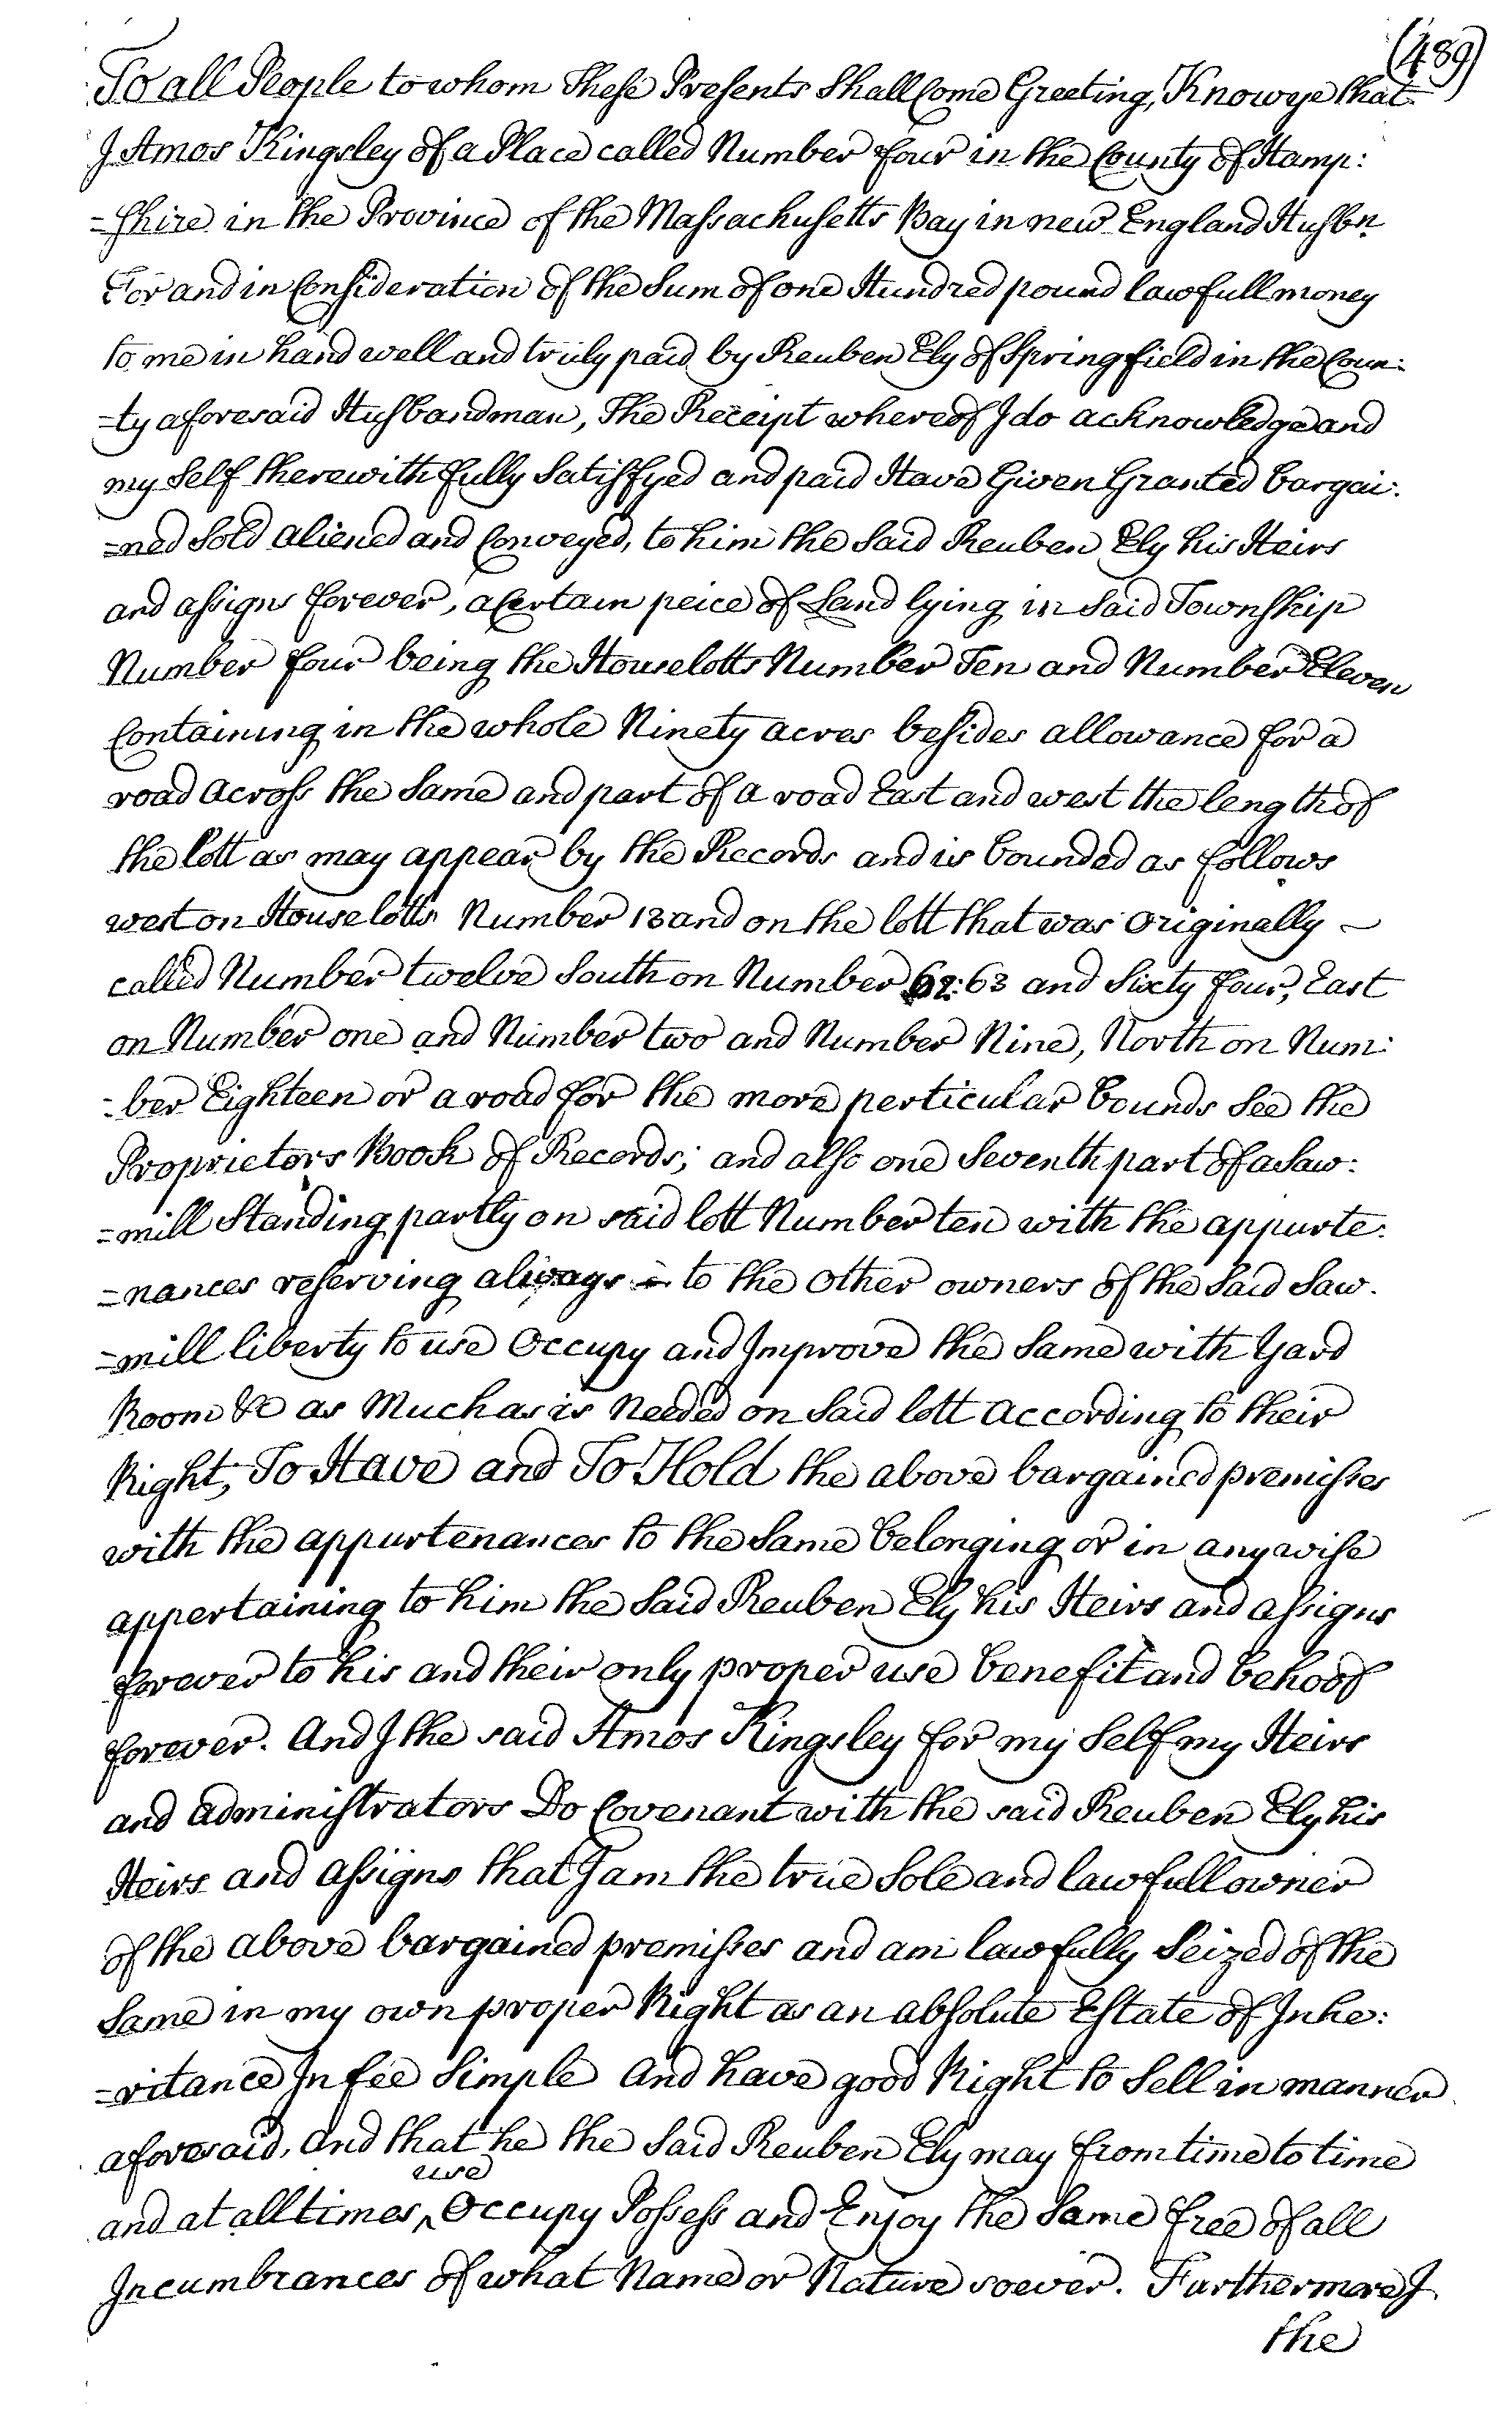 (489)
To all People to whom These Presents Shall Come Greeting, Know ye that
I Amos Kingsley of a Place called Number four in the County of Hamp:
=shire in the Province of the Massachusetts Bay in new England Husbn
For and in Consideration of the Sum of one Hundred pound lawfull money
to me in hand well and truly paid by Reuben Ely of Springfield in the Coun:
=ty aforesaid Husbandman, The Receipt whereof I do acknowledge and
my Self therewith fully Satisfyed and paid Have Given Granted bargai:
=ned Sold aliened and Conveyed, to him the Said Reuben Ely his Heirs
and assigns forever, a Certain peice of Land lying in Said Township
Number four being the Houselotts Number Ten and Number Eleven
Containing in the whole Ninety acres besides allowance for a
road across the Same and part of a road East and west the length of
the lott as may appear by the Records and is bounded as follows
west on House lotts Number 13 and on the lott that was originally –
called Number twelve South on Number 62: 63 and Sixty four, East
on Number one and Number two and Number Nine, North on Num:
=ber Eighteen or a road for the more perticular bounds See the
Proprietors Book of Records; and also one Seventh part of a Saw:
=mill Standing partly on said lott Number ten with the appurte:
=nances reserving always to the other owners of the Said Saw.
=mill liberty to use Occupy and Improve the Same with Yard
Room &c as Much as is Needed on Said lott according to their
Right, To Have and To Hold the above bargained premisses
with the appurtenances to the Same belonging or in any wise
appertaining to him the Said Reuben Ely his Heirs and assigns
forever to his and their only proper use benefit and behoof
forever. And I the said Amos Kingsley for my Self my Heirs
and administrators Do Covenant with the said Reuben Ely his
Heirs and assigns that I am the true Sole and lawfull owner
of the above bargained premisses and am lawfully Seized of the
Same in my own proper Right as an absolute Estate of Inhe:
=ritance In fee Simple And have good Right to Sell in manner
aforesaid, And that he the Said Reuben Ely may from time to time
use
and at all times ^ Occupy Possess and Enjoy the Same free of all
Incumbrances of what Name or Nature soever. Furthermore I
the